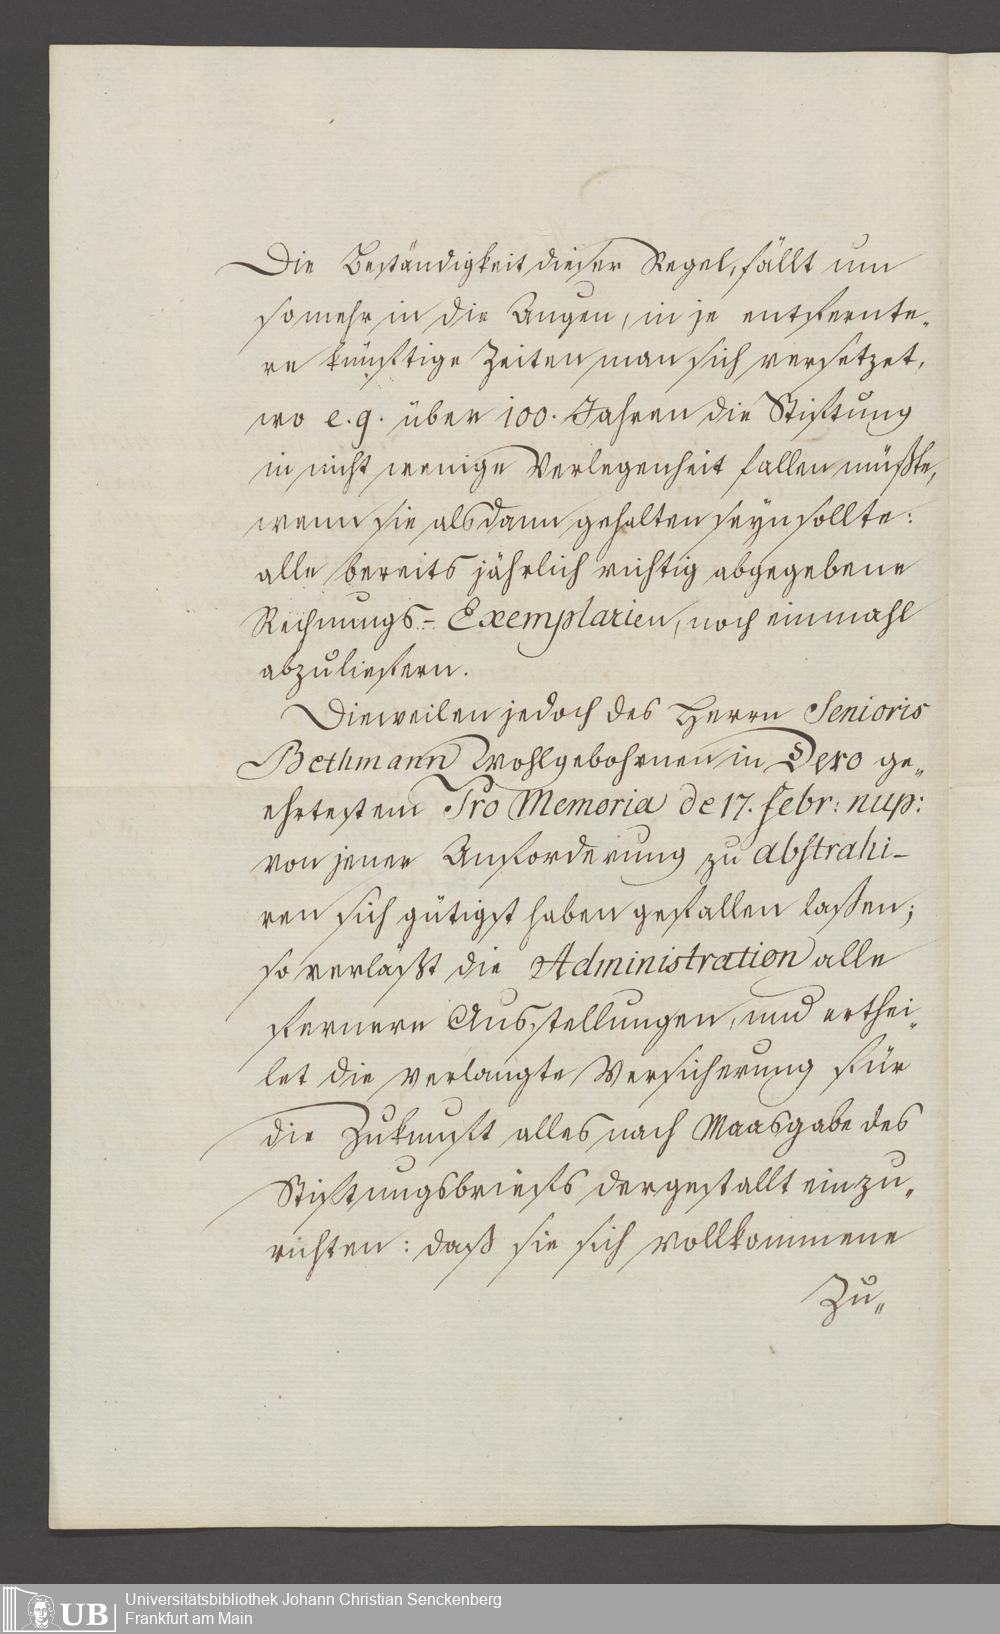 Die Beständigkeit dieser Regel, fällt um
somehr in die Augen, in je entfernte„
re künftige Zeiten man sich versetzet,
wo e. g. über 100. Jahren die Stiftung
in nicht wenige Verlegenheit fallen müßte,
wenn sie alsdann gehalten seyn sollte:
alle bereits jährlich richtig abgegebene
Rechnungs-Exemplarien, noch einmahl
abzuliefern.
Dieweilen jedoch des Herrn Senioris
Bethmann Wohlgebohrnen in Dero ge„
ehrtestem Pro Memoria de 17. Febr: nup:
von jener Anforderung zu abstrahi-
ren sich gütigst haben gefallen laßen;
so verläßt die Administration alle
fernere Ausstellungen, und erthei„
let die verlangte Versicherung für
die Zukunft alles nach Maasgabe des
Stiftungsbriefs dergestallt einzu„
richten: daß sie sich vollkommene
Zu„
UB
Universitätsbibliothek Johann Christian Senckenberg
Frankfurt am Main